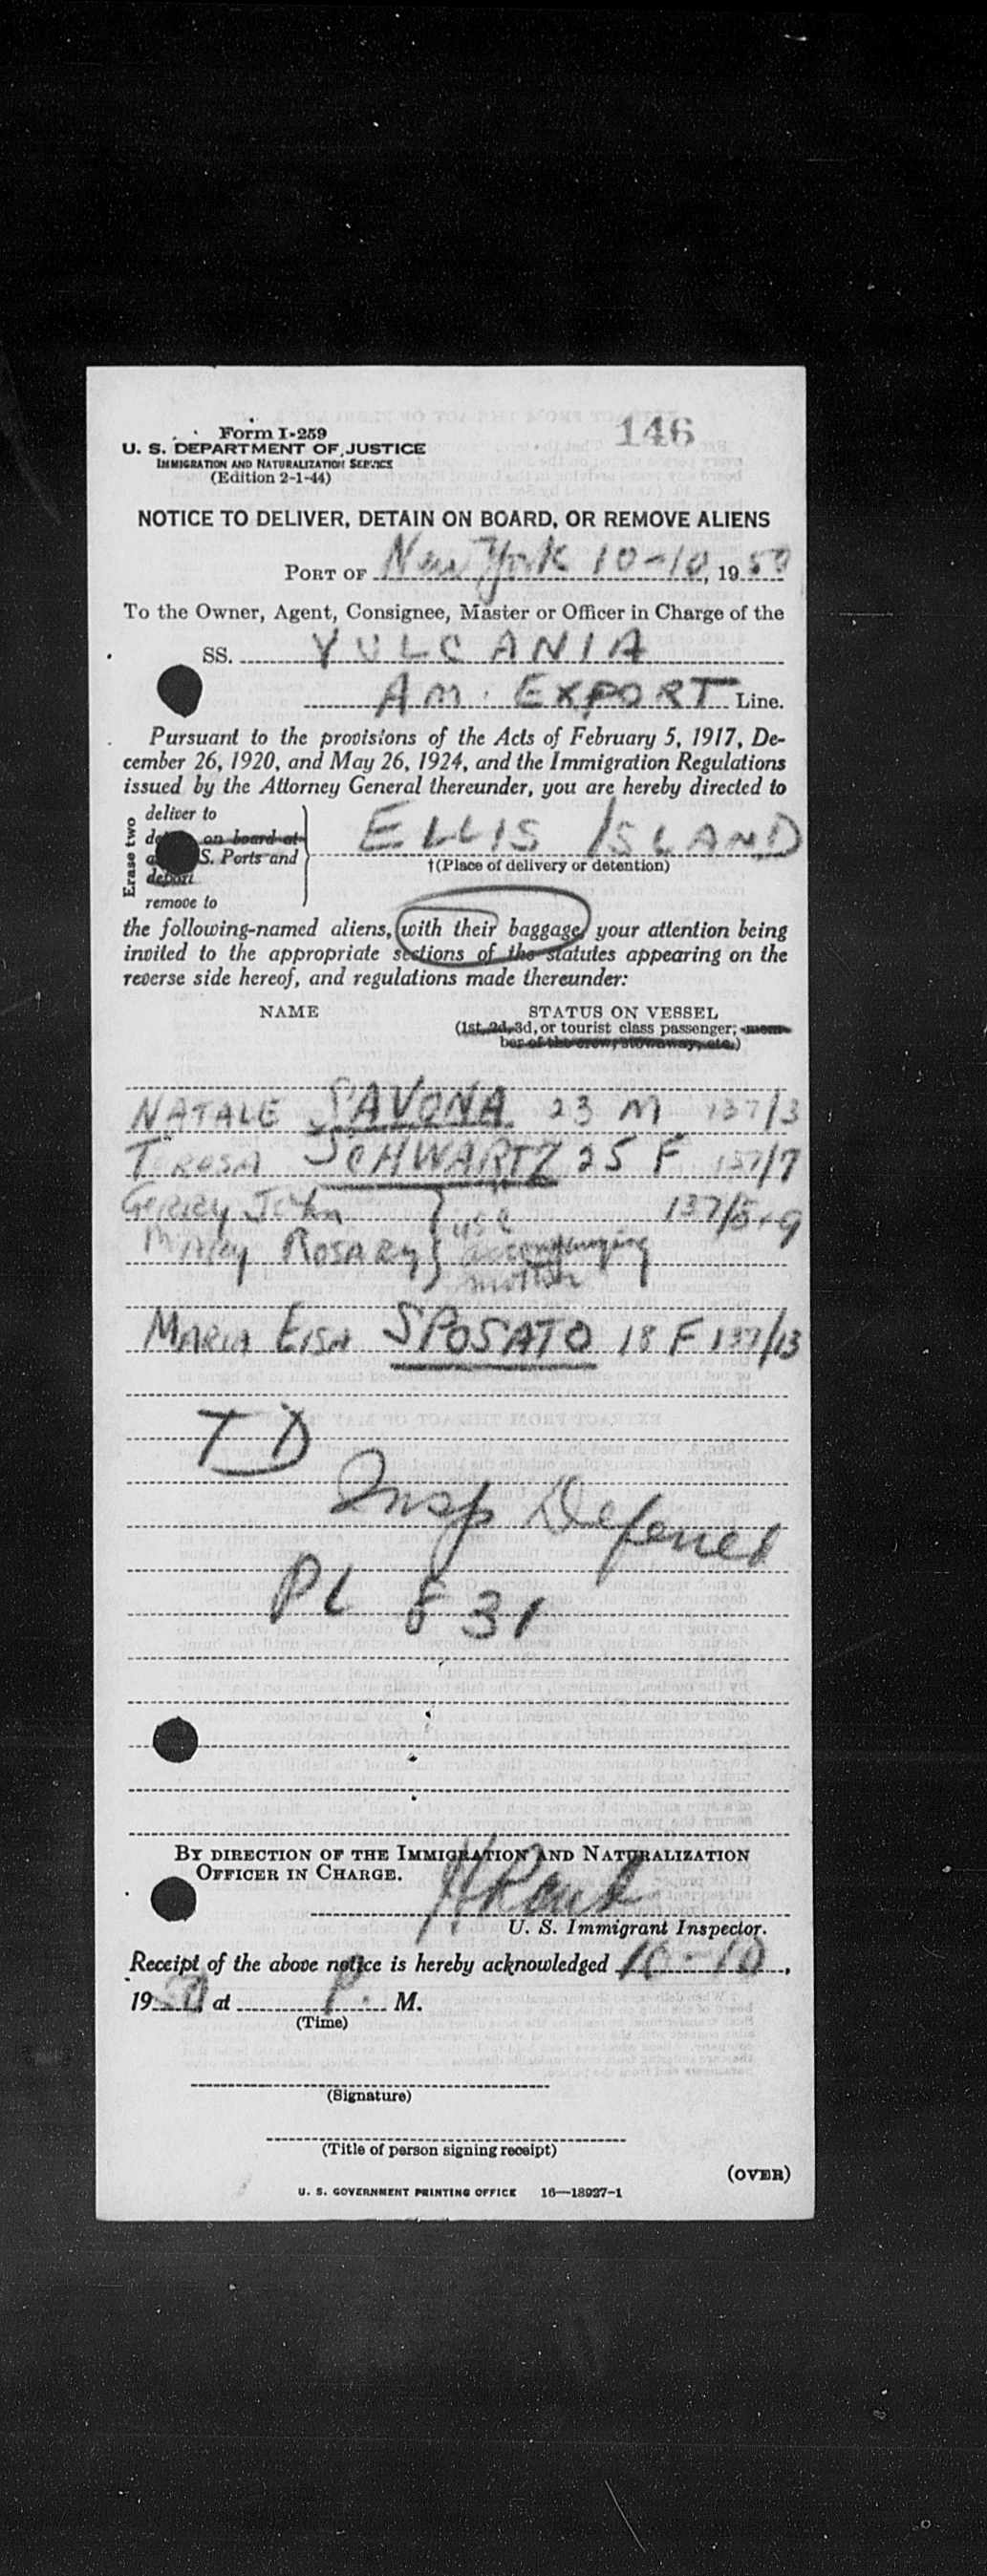 146
Form I-259
U. S. DEPARTMENT OF JUSTICE
IMMIGRATION AND NATURALIZATION SERVICE
(Edition 2-1-44)
NOTICE TO DELIVER, DETAIN ON BOARD, OR REMOVE ALIENS
PORT OF New York 10-10, 1950
To the Owner, Agent, Consignee, Master or Officer in Charge of the
SS. VULCANIA
AM. EXPORT Line.
Pursuant to the provisions of the Acts of February 5, 1917, De-
cember 26, 1920, and May 26, 1924, and the Immigration Regulations
issued by the Attorney General thereunder, you are hereby directed to
Erase two
deliver to
on board at
S. Ports and
deport
remove to
ELLIS ISLAND
†(Place of delivery or detention)
the following-named aliens, with their baggage, your attention being
invited to the appropriate sections of the statutes appearing on the
reverse side hereof, and regulations made thereunder:
NAME STATUS ON VESSEL
(1st, 2d, 3d, or tourist class passenger; mem-
ber of the crew, stowaway, etc.)
NATALE SAVONA 23 M 137/3
TERESA SCHWARTZ 25 F 137/7
John 137/8+9
Mary ROSARY accompanying
mother
MARIA ELSA SPOSATO 18 F 137/13
TD
Insp Deferred
PL 831
BY DIRECTION OF THE IMMIGRATION AND NATURALIZATION
OFFICER IN CHARGE.
U. S. Immigrant Inspector.
Receipt of the above notice is hereby acknowledged 10-10,
1950, at P. M.
(Time)
(Signature)
(Title of person signing receipt)
(OVER)
U. S. GOVERNMENT PRINTING OFFICE 16—18927-1